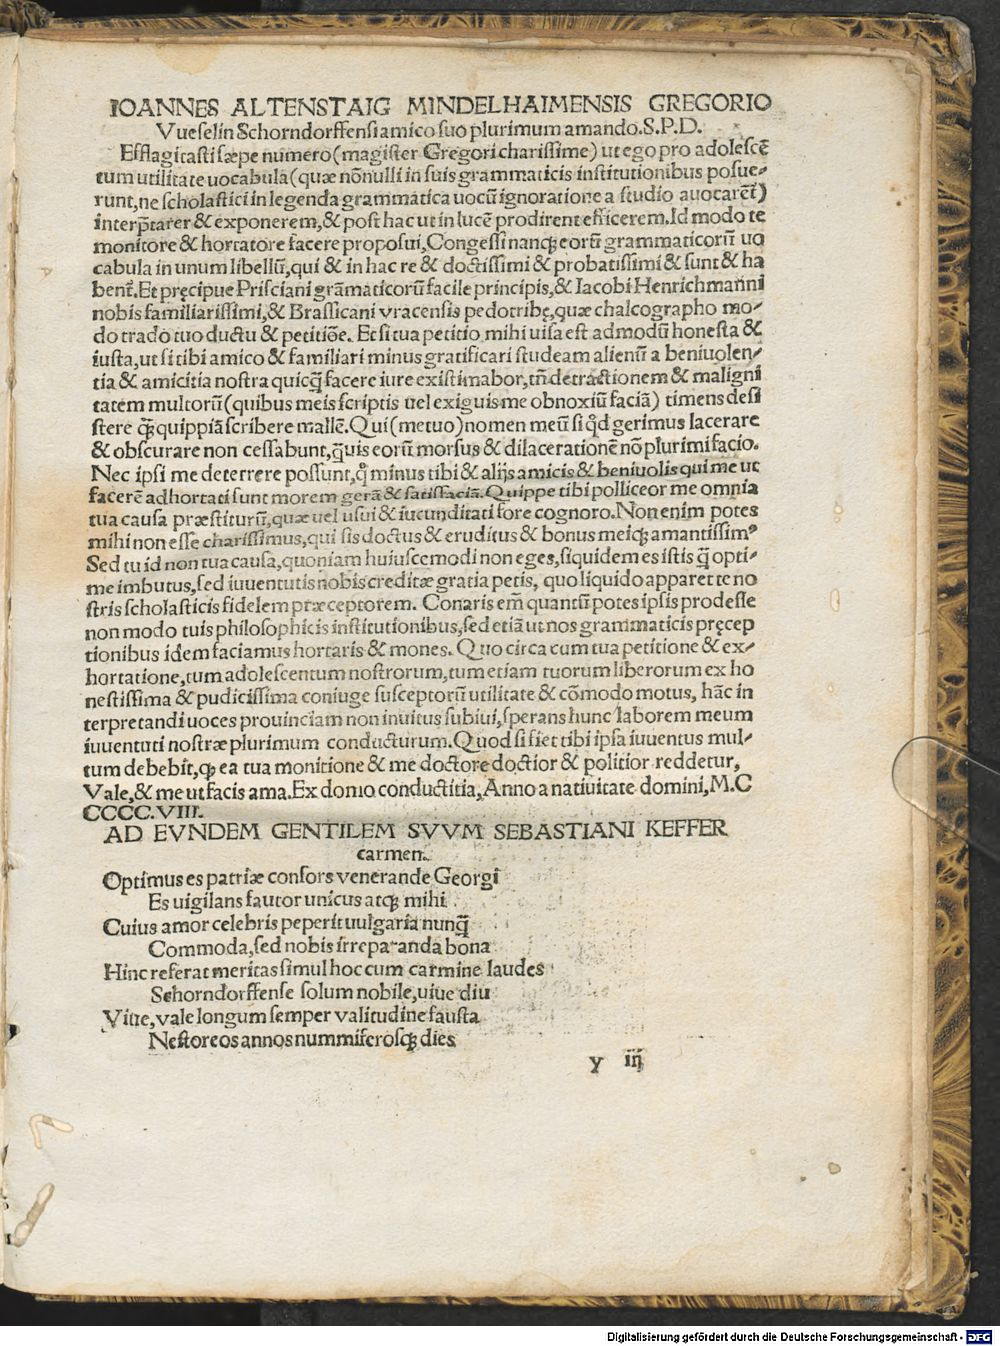 IOANNES ALTENSTAIG MINDELHAIMENSIS GREGORIO
Vueselin Schorndorffensi amico suo plurimum amando.S.P.D.
Efflagitasti sæpe numero(magister Gregori charissime) ut ego pro adolescē
tum utilitate uocabula(quæ nōnulli in suis grammaticis institutionibus posue/
runt,ne scholastici in legenda grammatica uocū ignoratione a studio auocarēt)
interp̄tarer & exponerem,& post hac ut in lucē prodirent efficerem.Id modo te
monitore & hortatore facere proposui,Congessi nanqꝫ eorū grammaticorū uo
cabula in unum libellū,qui & in hac re & doctissimi & probatissimi & sunt & ha
bent̄.Et pręcipue Prisciani grāmaticorū facile principis,& Iacobi Henrichmanni
nobis familiarissimi,& Brassicani vracensis pedotribę,quæ chalcographo mo/
do trado tuo ductu & petitiōe. Et si tua petitio mihi uisa est admodū honesta &
iusta,ut si tibi amico & familiari minus gratificari studeam alienū a beniuolen/
tia & amicitia nostra quicq̄ facere iure existimabor,tn̄ detractionem & maligni
tatem multorū(quibus meis scriptis uel exiguis me obnoxiū faciā) timens desi
stere q̄ꝫ quippiā scribere mallē.Qui(metuo)nomen meū si qd̄ gerimus lacerare
& obscurare non cessabunt,q̄uis eorū morsus & dilacerationē nō plurimi facio.
Nec ipsi me deterrere possunt,q̊ minus tibi & alijs amicis & beniuolis qui me ut
facerē adhortati sunt morem gerā & satisfaciā.Quippe tibi polliceor me omnia
tua causa præstiturū,quæ uel usui & iucunditati fore cognoro.Non enim potes
mihi non esse charissimus,qui sis doctus & eruditus & bonus meiqꝫ amantissimꝰ
Sed tu id non tua causa,quoniam huiuscemodi non eges,siquidem es istis q̄ opti/
me imbutus,sed iuuentutis nobis creditæ gratia petis, quo liquido apparet te no
stris scholasticis fidelem præceptorem. Conaris em̄ quantū potes ipsis prodesse
non modo tuis philosophicis institutionibus,sed etiā ut nos grammaticis pręcep
tionibus idem faciamus hortaris & mones. Quo circa cum tua petitione & ex/
hortatione,tum adolescentum nostrorum,tum etiam tuorum liberorum ex ho
nestissima & pudicissima coniuge susceptorū utilitate & cōmodo motus, hāc in
terpretandi uoces prouinciam non inuitus subiui,sperans hunc laborem meum
iuuentuti nostræ plurimum conducturum.Quod si fiet tibi ipsa iuuentus mul/
tum debebit,qꝫ ea tua monitione & me doctore doctior & politior reddetur,
Vale,& me ut facis ama.Ex domo conductitia,Anno a natiuitate domini,M.C
CCCC.VIII.
AD EVNDEM GENTILEM SVVM SEBASTIANI KEFFER
carmen.
Optimus es patriæ consors venerande Georgi
Es uigilans fautor unicus atqꝫ mihi
Cuius amor celebris peperit uulgaria nunq̄
Commoda,sed nobis irreparanda bona
Hinc referat meritas simul hoc cum carmine laudes
Schorndorffense solum nobile,uiue diu
Viue,vale longum semper valitudine fausta
Nestoreos annos nummiferosqꝫ dies
y iij
Digitalisierung gefördert durch die Deutsche Forschungsgemeinschaft - DFG